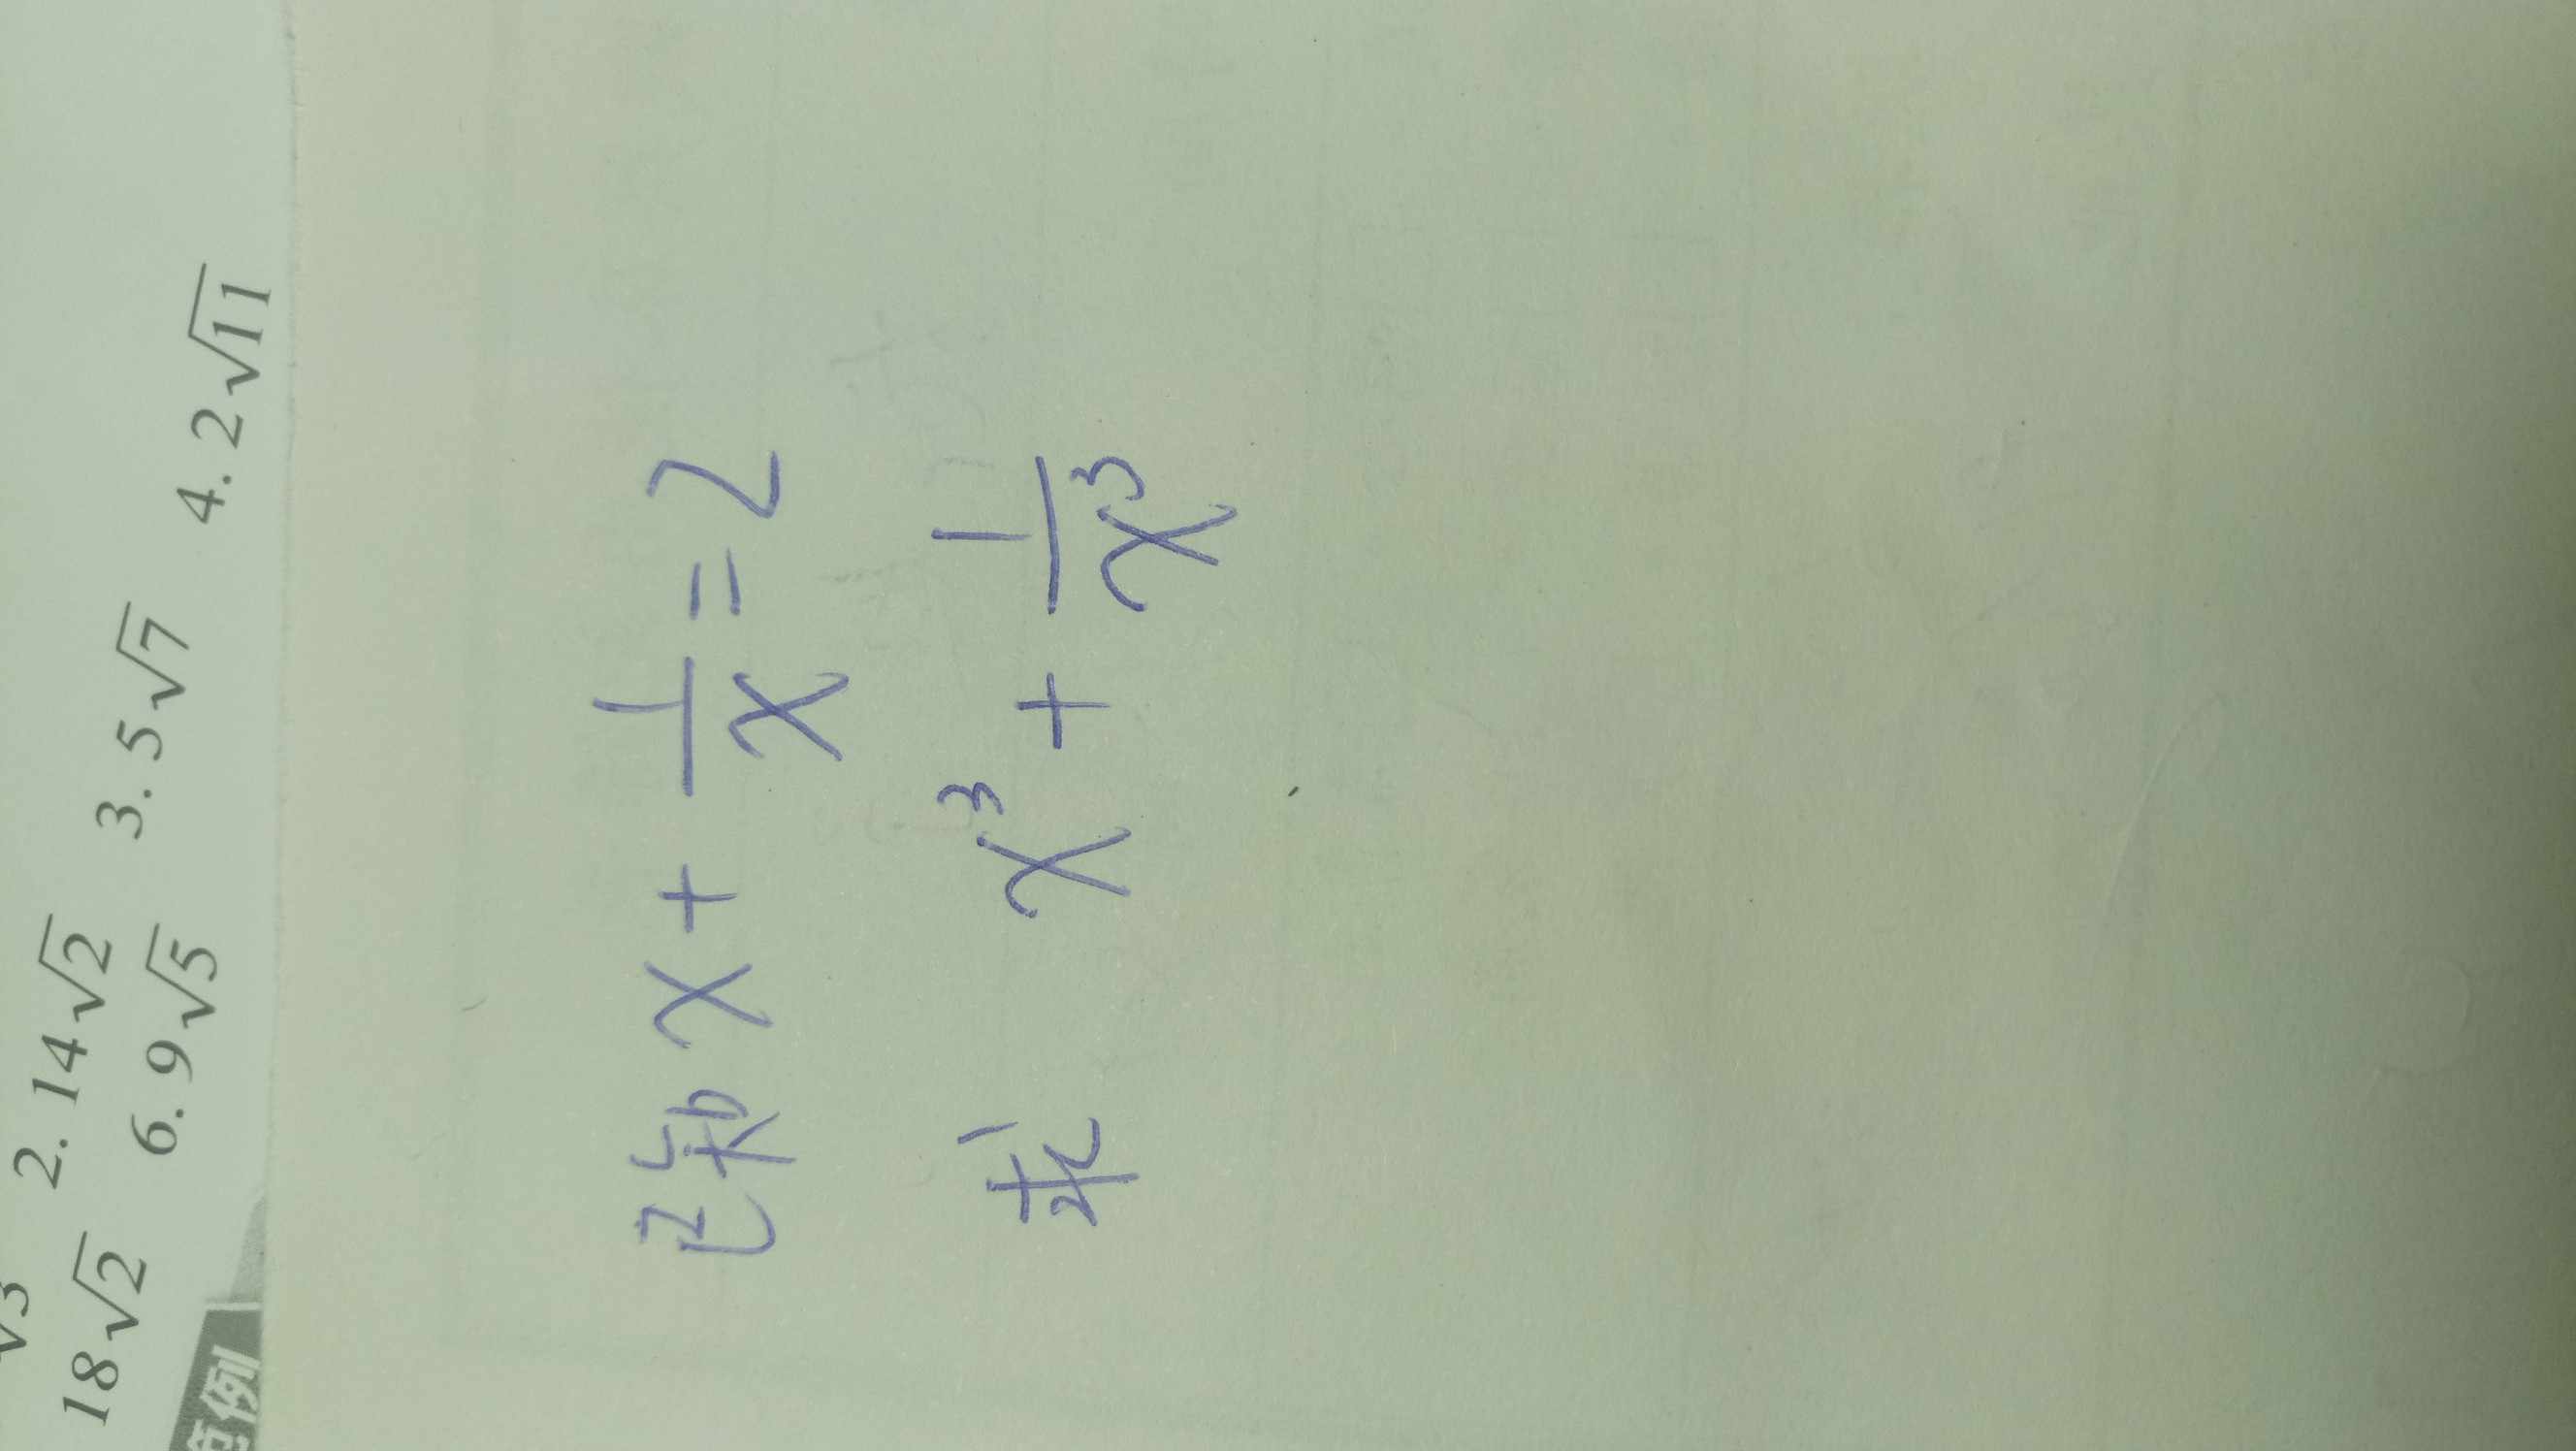 √3 2. 14√2 3. 5√7 4. 2√11
18√2 6. 9√5
范例
已知 x + 1/x = 2
求 x³ + 1/x³